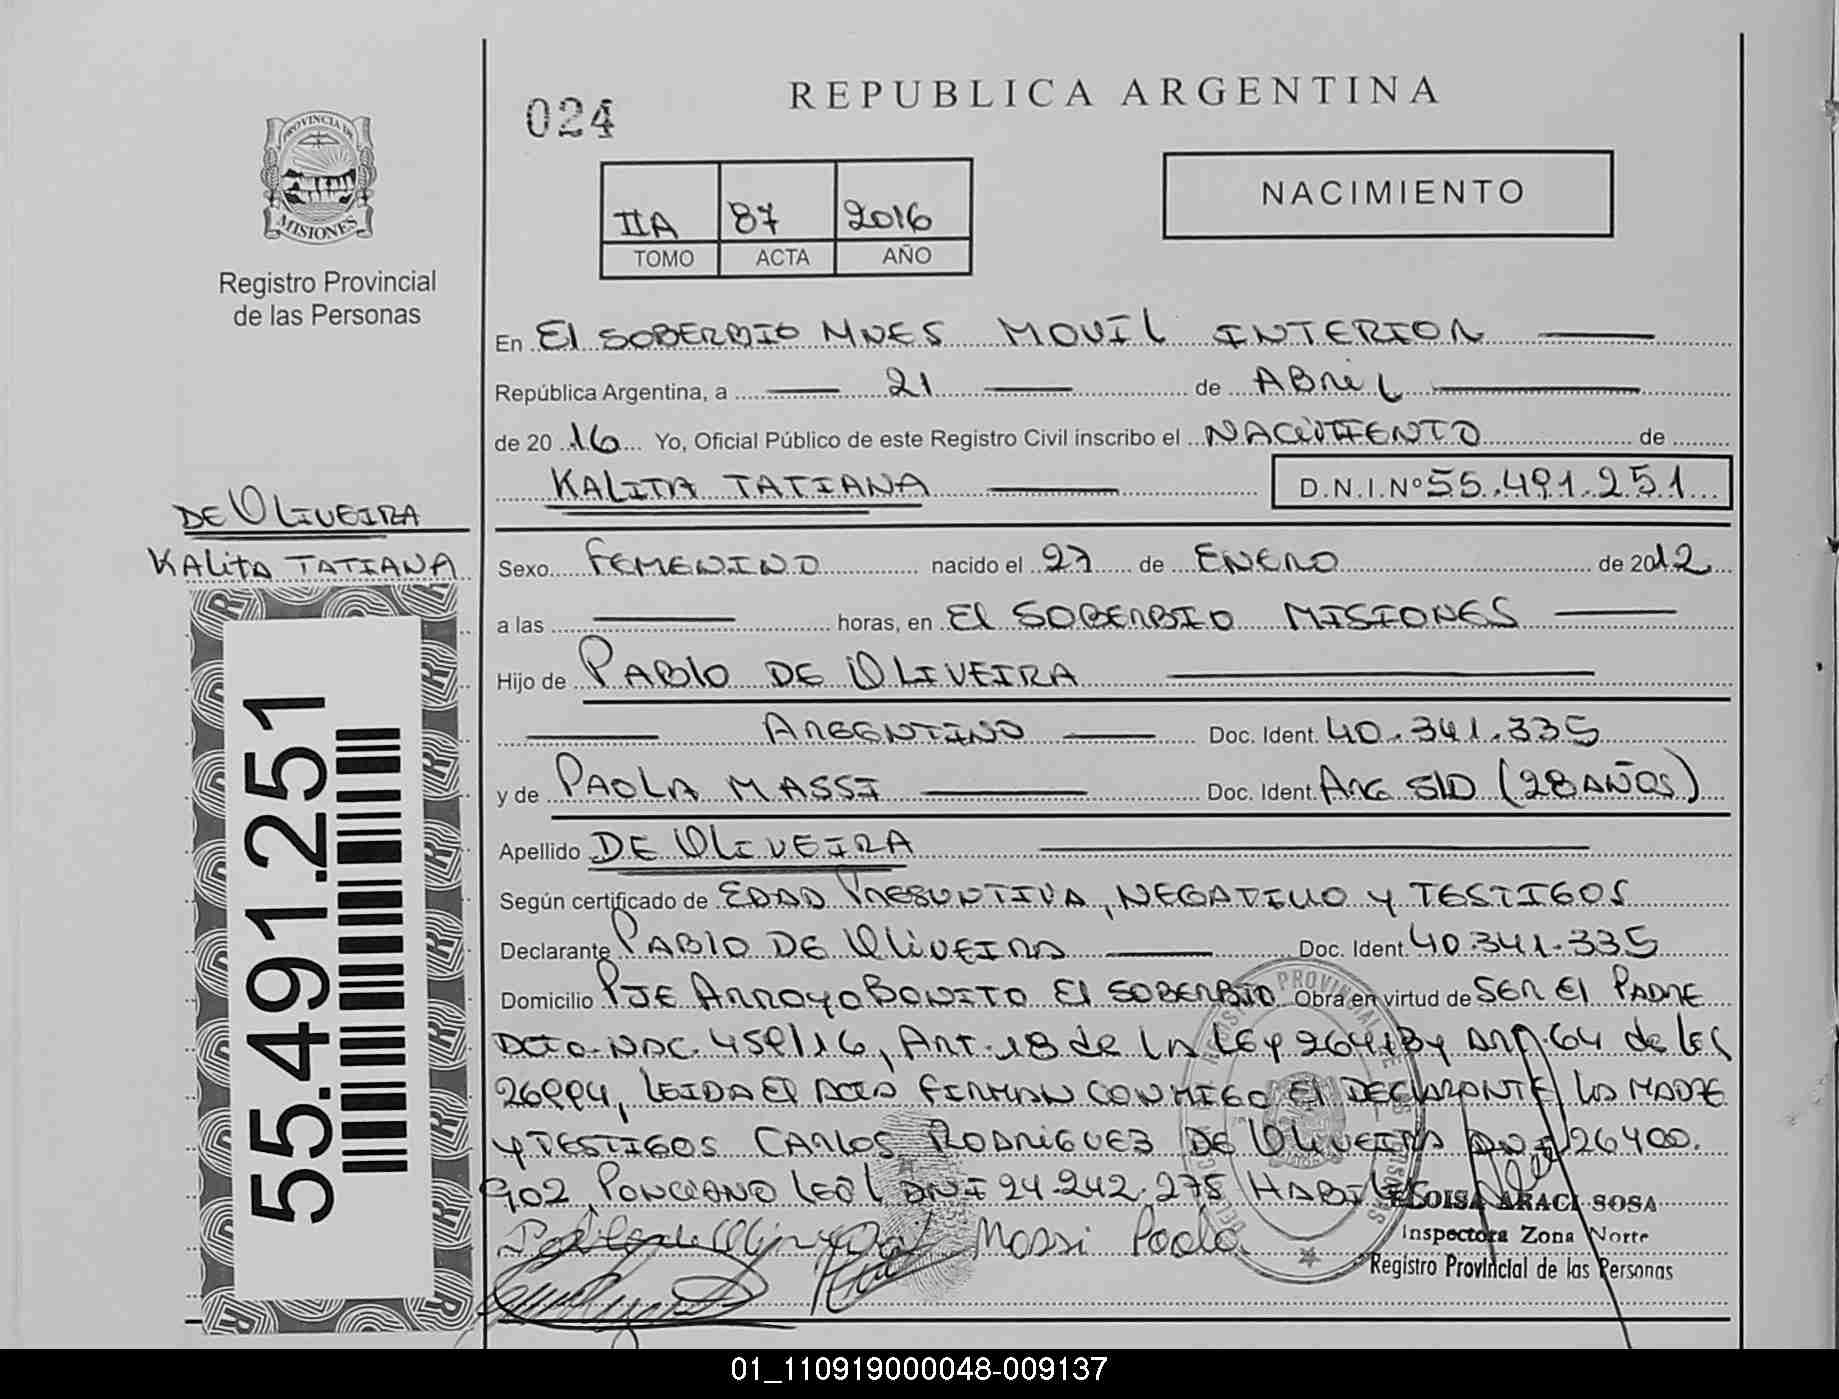 REPUBLICA ARGENTINA
024
NACIMIENTO
IIA 87 2016
TOMO ACTA AÑO
PROVINCIA DE
MISIONES
Registro Provincial
de las Personas
En El SOBERBIO MNES MOVIL INTERIOR
República Argentina, a 21 de ABRIL
de 2016 Yo, Oficial Público de este Registro Civil inscribo el NACIMIENTO de
KALITA TATIANA D.N.I.Nº 55.491.251
DE OLIVEIRA
KALITA TATIANA
55.491.251
Sexo FEMENINO nacido el 27 de ENERO de 2012
a las horas, en El SOBERBIO MISIONES
Hijo de PABLO DE OLIVEIRA
ARGENTINO Doc. Ident. 40.341.335
y de PAOLA MASSI Doc. Ident. ARG S/D (28 AÑOS)
Apellido DE OLIVEIRA
Según certificado de EDAD PRESUNTIVA, NEGATIVO Y TESTIGOS
Declarante PABLO DE OLIVEIRA Doc. Ident. 40.341.335
Domicilio PJE ARROYO BONITO El SOBERBIO Obra en virtud de SER El PADRE
DCTO. NAC. 459/16, ART. 18 de LA LEY 26413 Y ART 64 de LEY
26994, LEIDA El ACTA FIRMAN CONMIGO El DECLARANTE LA MADRE
Y TESTIGOS CARLOS RODRIGUEZ DE OLIVEIRA DNI 26400.
902, PONCIANO LEAL DNI 24.242.275 HABILES
Massi Paola
ELOISA ARACI SOSA
Inspectora Zona Norte
Registro Provincial de las Personas
01_110919000048-009137